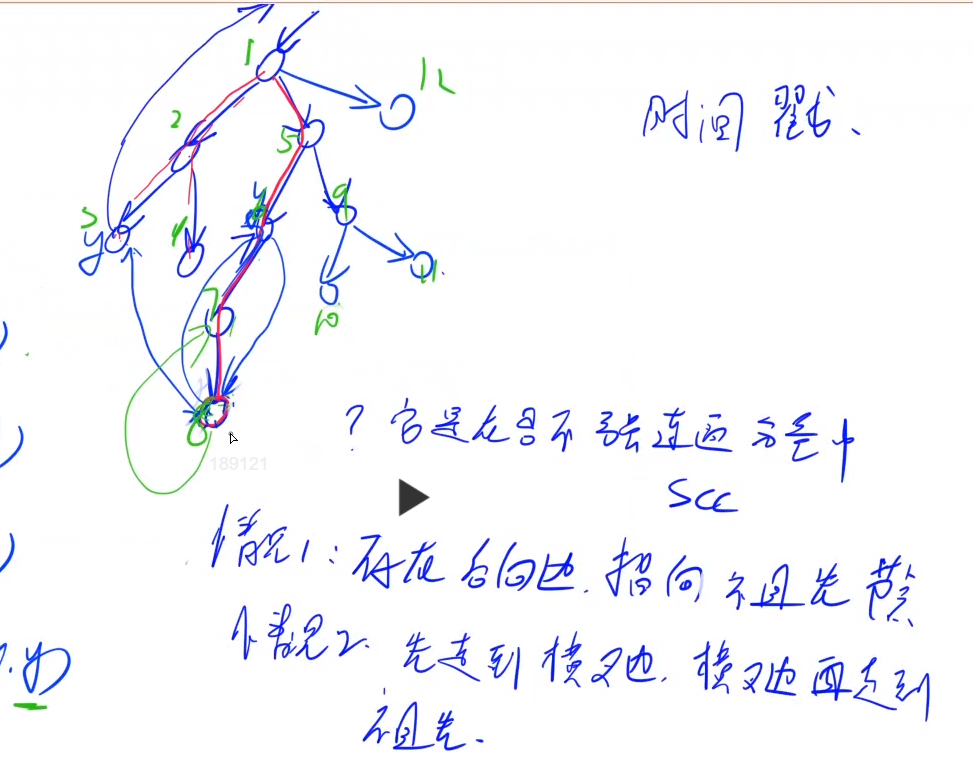 1
12
时间戳、
2
5
3
4
6
9
y
11.
7
10
8
? 它是否在某个强连通分量中
189121
SCC
情况1:存在后向边,指向祖先节点
情况2.先走到横叉边,横叉边再走到
祖先.
.y)